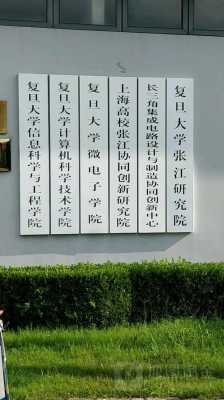 复旦大学张江研究院
长三角集成电路设计与制造协同创新中心
上海高校张江协同创新研究院
复旦大学微电子学院
复旦大学计算机科学技术学院
复旦大学信息科学与工程学院